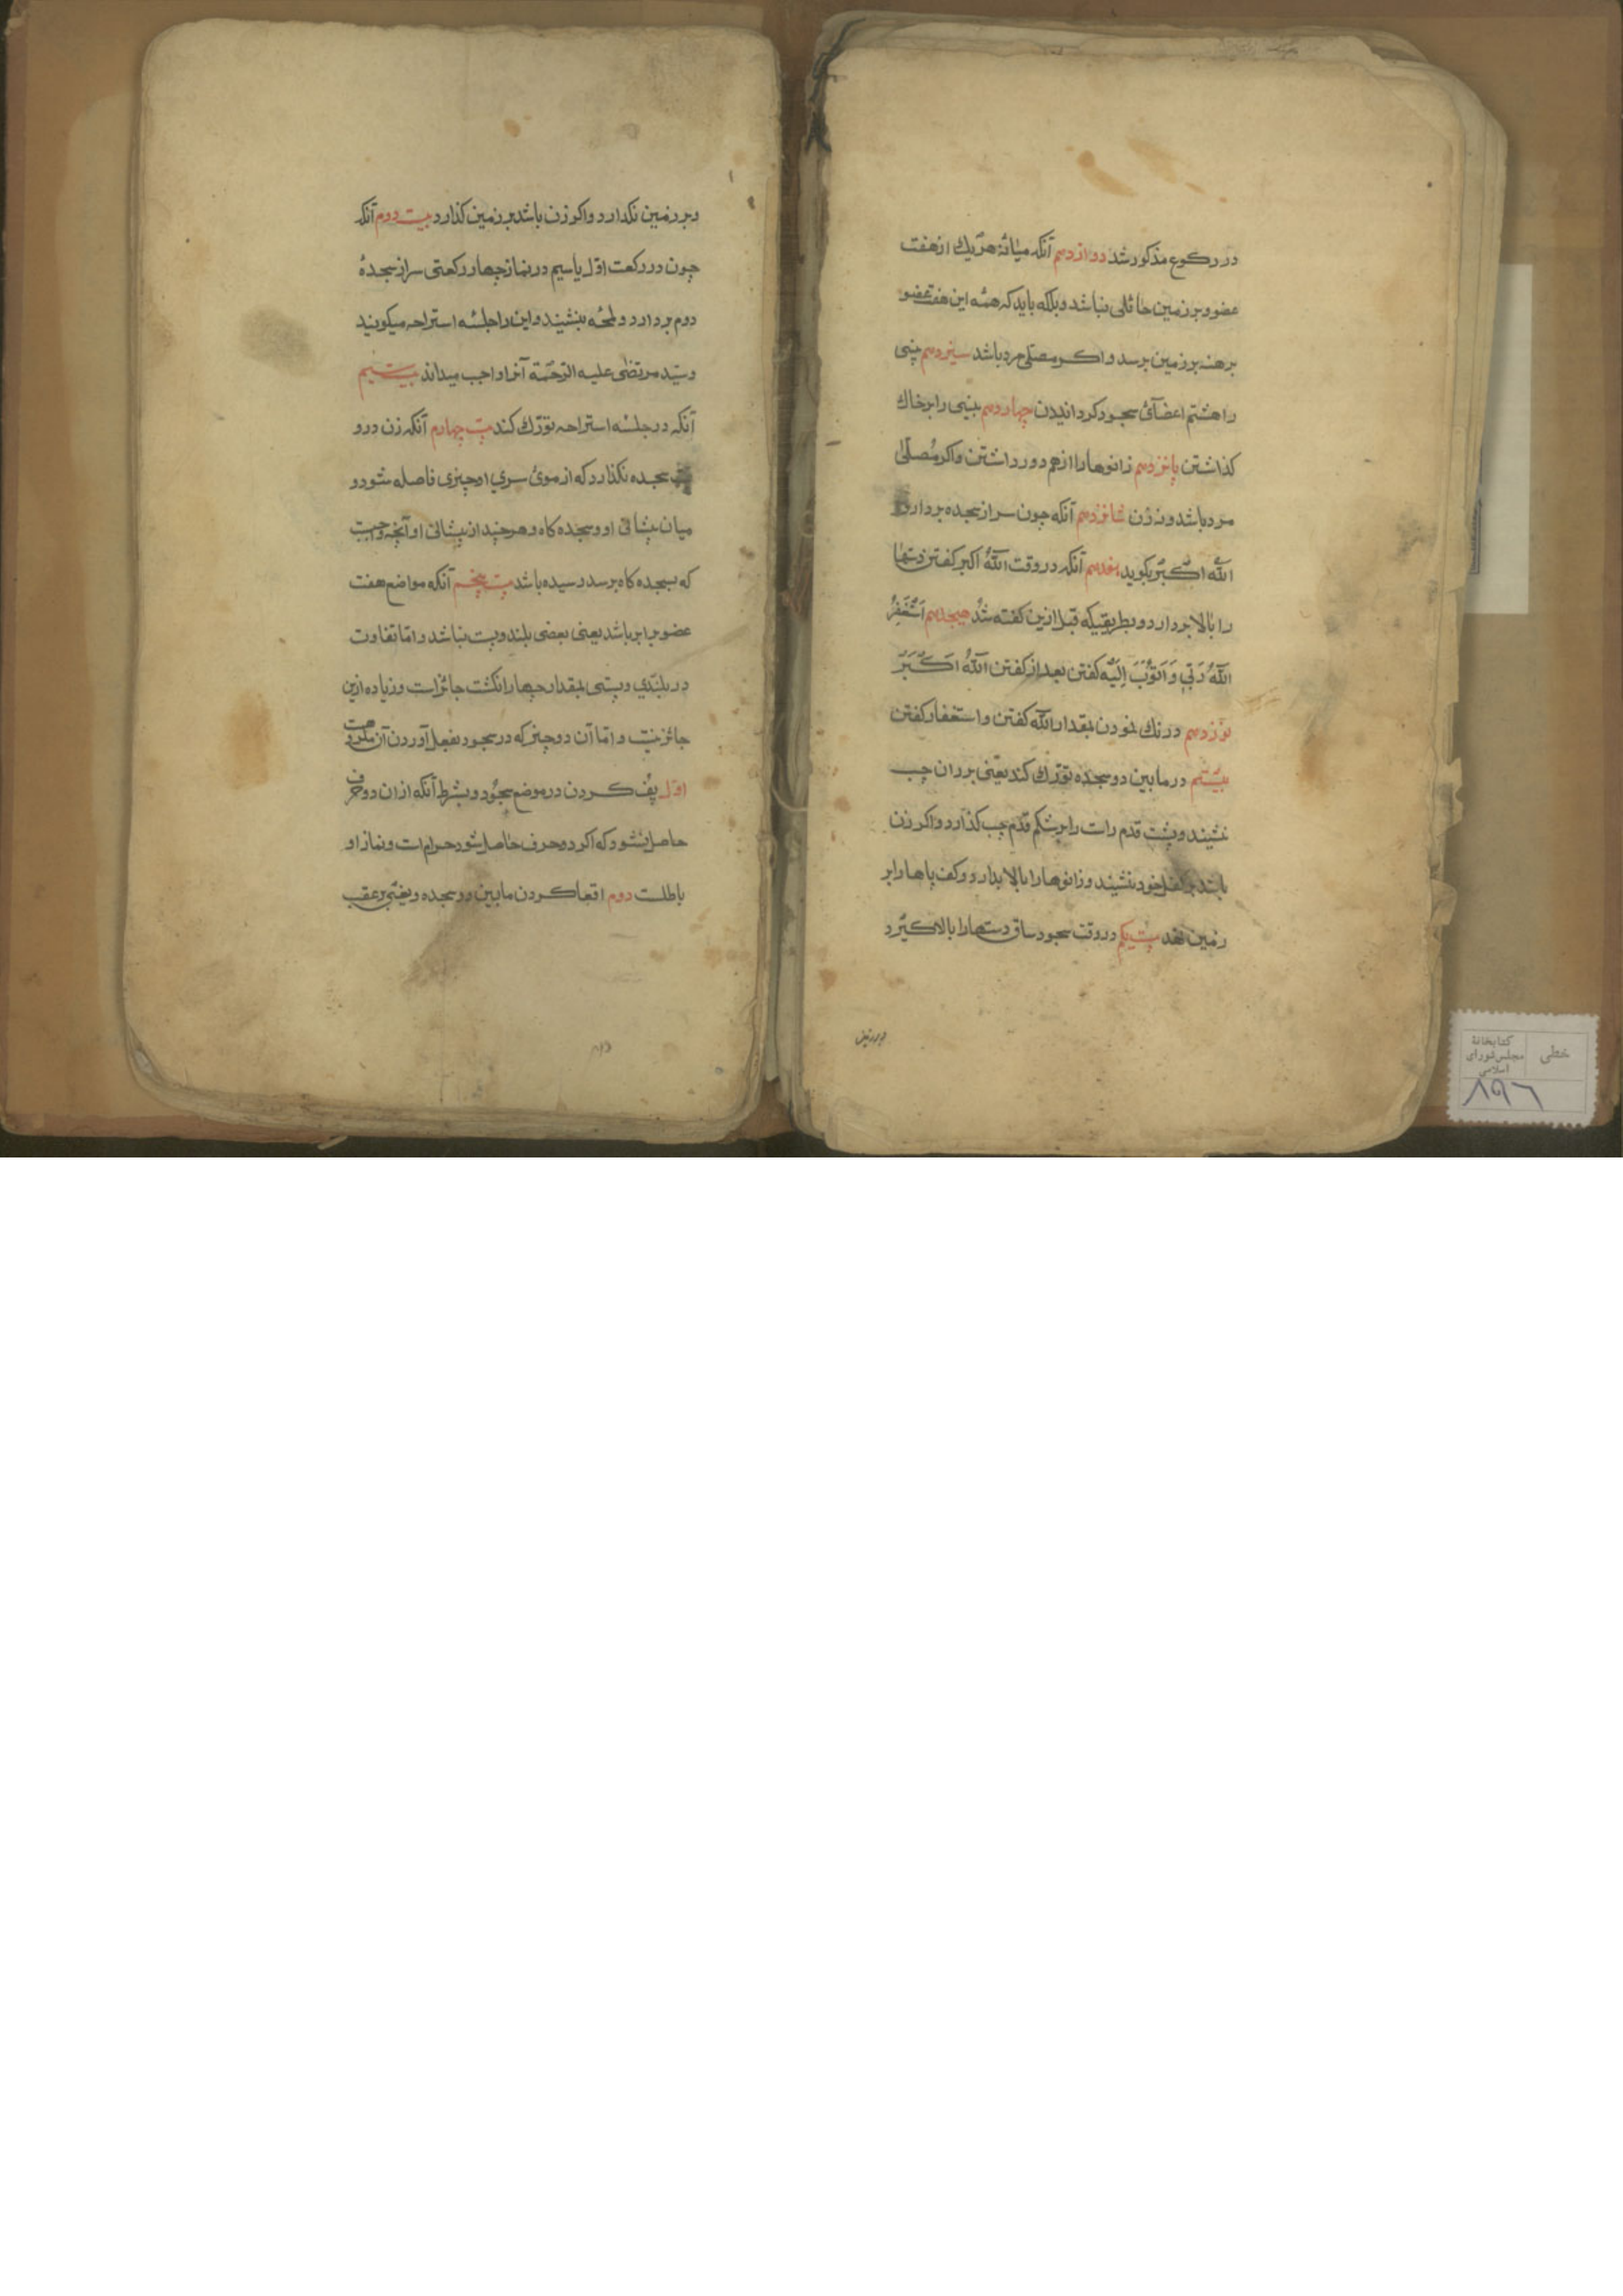 در رکوع مذکور شد دوازدهم آنکه میانهٔ هر یك از هفت
عضو و بر زمین حائلی نباشد و بلکه باید که همه این هفت عضو
برهنه بر زمین برسد و اکر مصلّی مرد باشد سیزدهم بینی
را هشتم اعضآئ سجود کردانیدن چهاردهم بینی را بر خاك
کذاشتن پانزدهم زانوها را از هم دور داشتن و اکر مُصلّی
مرد باشد و نه زن شانزدهم آنکه چون سر از سجده بردارد
اللّه اکبر بکوید هفدهم آنکه در وقت اللّهُ اکبر کفتن دستها
را بالا بردارد و بطریقیکه قبل ازین کفته شد هیجدهم اَسْتَغْفِرُ
اللّهَ رَبّي وَ اَتُوبُ اِلَیْه کفتن بعد از کفتن اللّهُ اَکْبَر
نوزدهم درنك نمودن بمقدار اللّه کفتن و استغفار کفتن
بیستم در مابین دو سجده تورّك کند یعنی بر ران چپ
نشیند و پشت قدم راست را بر شکم قدم چپ کذارد و اکر زن
باشد بر کفل خود نشیند و زانوها را بالا بدارد و کف پاها را بر
زمین نهد بیست یکم در وقت سجود ساق دستها را بالا کیرد
و بر زمین
و بر زمین نکذارد و اکر زن باشد بر زمین کذارد بیست دوم آنکه
چون در رکعت اوّل یا سیم در نماز چهار رکعتی سر از سجدهٔ
دوم بردارد و لمحهٔ بنشیند و این را جلسهٔ استراحه میکویند
و سیّد مرتضٰی علیه الرّحمَة آنرا واجب میداند بیست سیم
آنکه در جلسهٔ استراحه تورّك کند بیست چهارم آنکه زن در و
سجده نکذارد که از موئ سري او چیزی فاصله شود و
میان پیشانی او و سجده کاه و هر چند از پیشانی او آنچه واجبست
که بسجده کاه برسد رسیده باشد بیست پنجم آنکه مواضع هفت
عضو برابر باشد یعنی بعضی بلند و پست نباشد و امّا تفاوت
در بلندي و پستی بمقدار چهار انکشت جائز است و زیاده ازین
جائز نیست و امّا آن دو چیز که در سجود بفعل آوردن آن مکروهست
اوّل پف کردن در موضع سجُود و بشرط آنکه ازان دو حرف
حاصل نشود که اکر دو حرف حاصل شود حرام است و نماز او
باطلست دوم اقعا کردن مابین دو سجده و یعنی بر عقب
خطی
کتابخانهٔ
مجلس شورای
اسلامی
۸۹۶